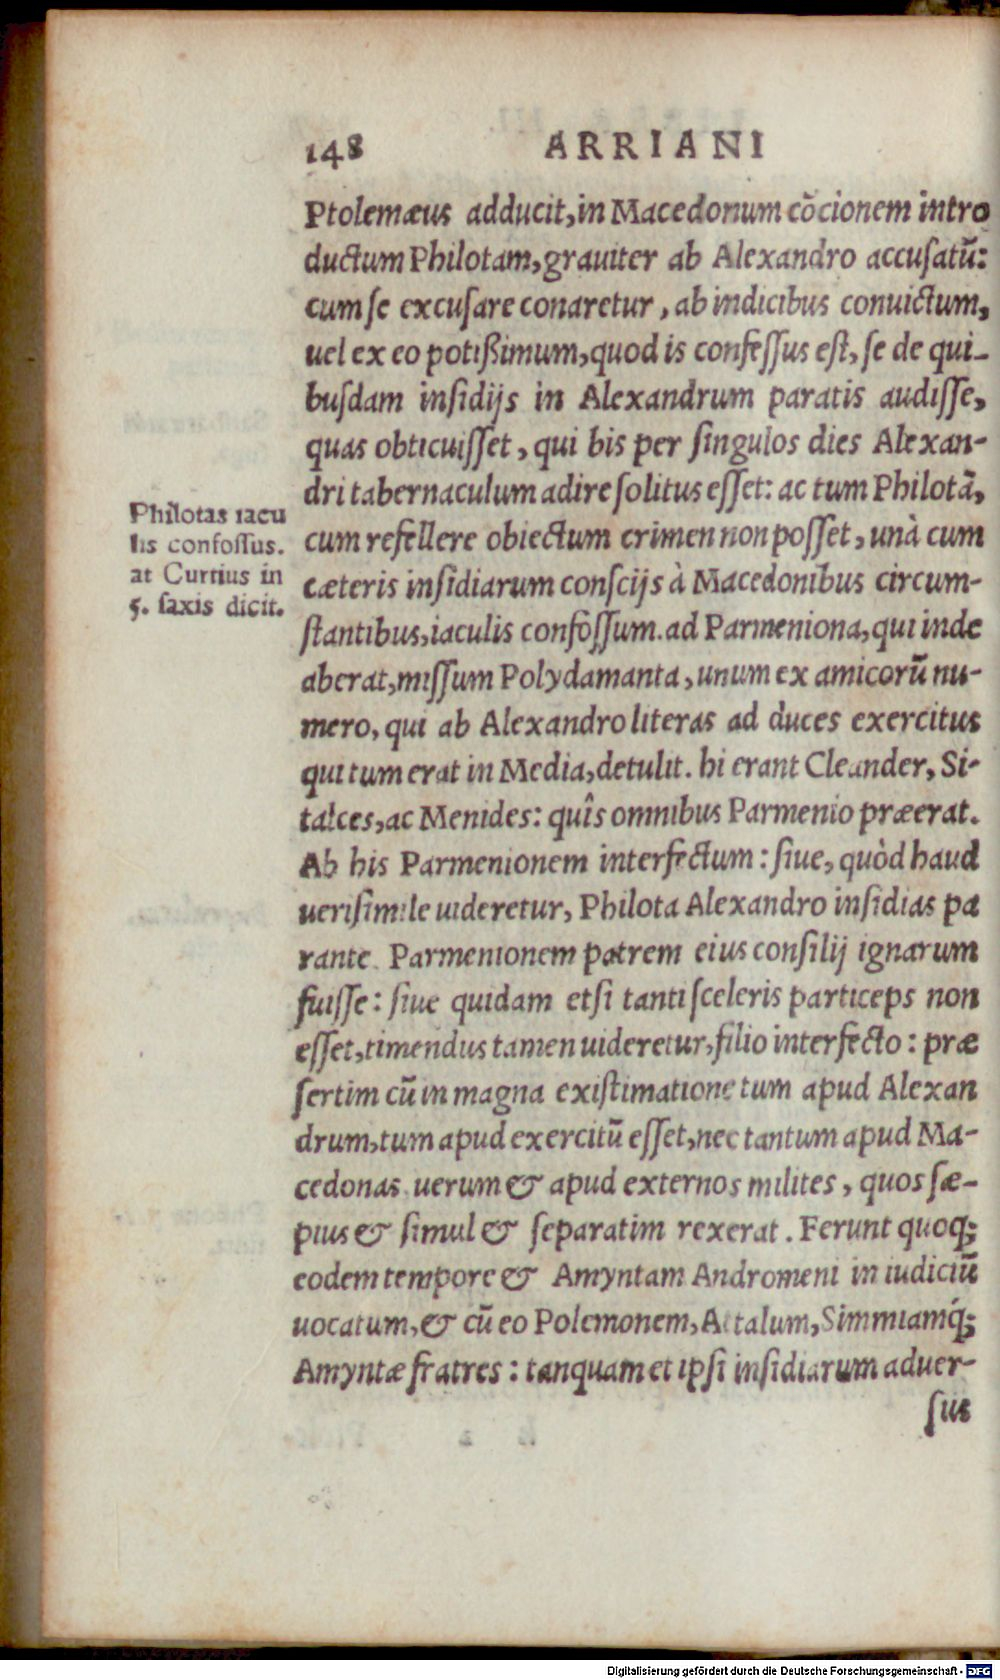 148 ARRIANI
Ptolemæus adducit, in Macedonum cõcionem intro
ductum Philotam, grauiter ab Alexandro accusatũ:
cum se excusare conaretur, ab indicibus conuictum,
uel ex eo potißimum, quod is confessus est, se de qui-
busdam insidijs in Alexandrum paratis audisse,
quas obticuisset, qui bis per singulos dies Alexan-
dri tabernaculum adire solitus esset: ac tum Philotã,
cum refellere obiectum crimen non posset, unà cum
cæteris insidiarum conscijs à Macedonibus circum-
stantibus, iaculis confossum. ad Parmeniona, qui inde
aberat, missum Polydamanta, unum ex amicorũ nu-
mero, qui ab Alexandro literas ad duces exercitus
qui tum erat in Media, detulit. hi erant Cleander, Si-
talces, ac Menides: quîs omnibus Parmenio præerat.
Ab his Parmenionem interfectum: siue, quòd haud
uerisimile uideretur, Philota Alexandro insidias pa
rante Parmenionem patrem eius consilij ignarum
fuisse: siue quidam etsi tanti sceleris particeps non
esset, timendus tamen uideretur, filio interfecto: præ
sertim cũ in magna existimatione tum apud Alexan
drum, tum apud exercitũ esset, nec tantum apud Ma-
cedonas, uerum & apud externos milites, quos sæ-
pius & simul & separatim rexerat. Ferunt quoq;
eodem tempore & Amyntam Andromeni in iudiciũ
uocatum, & cũ eo Polemonem, Attalum, Simmiamq́;
Amyntæ fratres: tanquam et ipsi insidiarum aduer-
sus
Philotas iacu
lis confossus.
at Curtius in
5. saxis dicit.
Digitalisierung gefördert durch die Deutsche Forschungsgemeinschaft - DFG